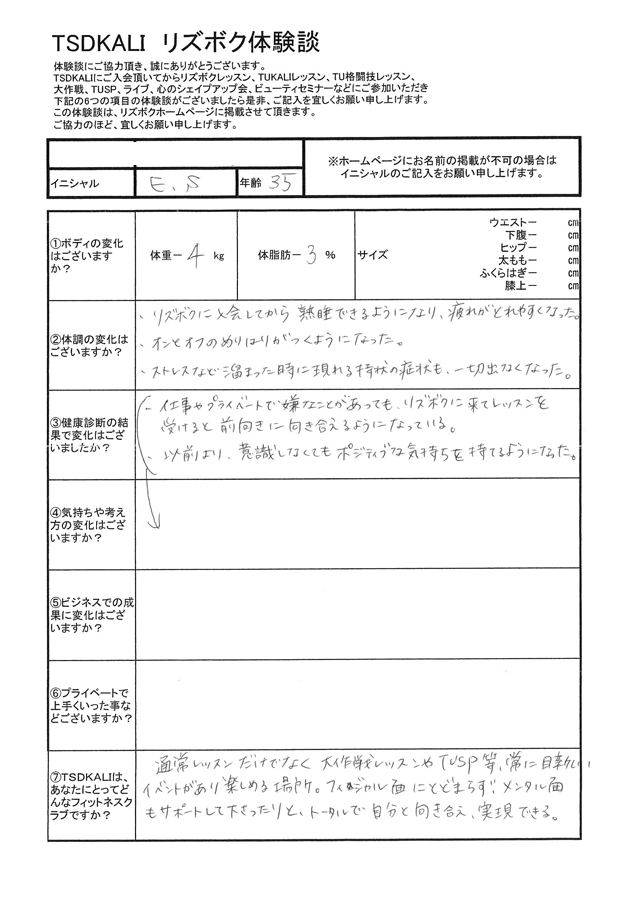 TSDKALI リズボク体験談
体験談にご協力頂き、誠にありがとうございます。
TSDKALIにご入会頂いてからリズボクレッスン、TUKALIレッスン、TU格闘技レッスン、
大作戦、TUSP、ライブ、心のシェイプアップ会、ビューティセミナーなどにご参加いただき
下記の6つの項目の体験談がございましたら是非、ご記入を宜しくお願い申し上げます。
この体験談は、リズボクホームページに掲載させて頂きます。
ご協力のほど、宜しくお願い申し上げます。
イニシャル E、S 年齢 35
※ホームページにお名前の掲載が不可の場合は
イニシャルのご記入をお願い申し上げます。
①ボディの変化
はございます
か?
体重ー 4 kg 体脂肪ー 3 % サイズ
ウエストー cm
下腹ー cm
ヒップー cm
太ももー cm
ふくらはぎー cm
膝上ー cm
②体調の変化は
ございますか?
・リズボクに入会してから熟睡できるようになり、疲れがとれやすくなった。
・オンとオフのめりはりがつくようになった。
・ストレスなど溜まった時に現れる特状の症状も、一切出なくなった。
③健康診断の結
果で変化はござ
いましたか?
・仕事やプライベートで嫌なことがあっても、リズボクに来てレッスンを
受けると前向きに向き合えるようになっている。
・以前より、意識しなくてもポジティブな気持ちを持てるようになった。
④気持ちや考え
方の変化はござ
いますか?
⑤ビジネスでの成
果に変化はござ
いますか?
⑥プライベートで
上手くいった事な
どございますか?
⑦TSDKALIは、
あなたにとってど
んなフィットネスク
ラブですか?
通常レッスンだけでなく大作戦レッスンやTUSP等、常に目新しい
イベントがあり楽しめる場所。フィジカル面にとどまらず、メンタル面
もサポートして下さったりと、トータルで自分と向き合え、実現できる。